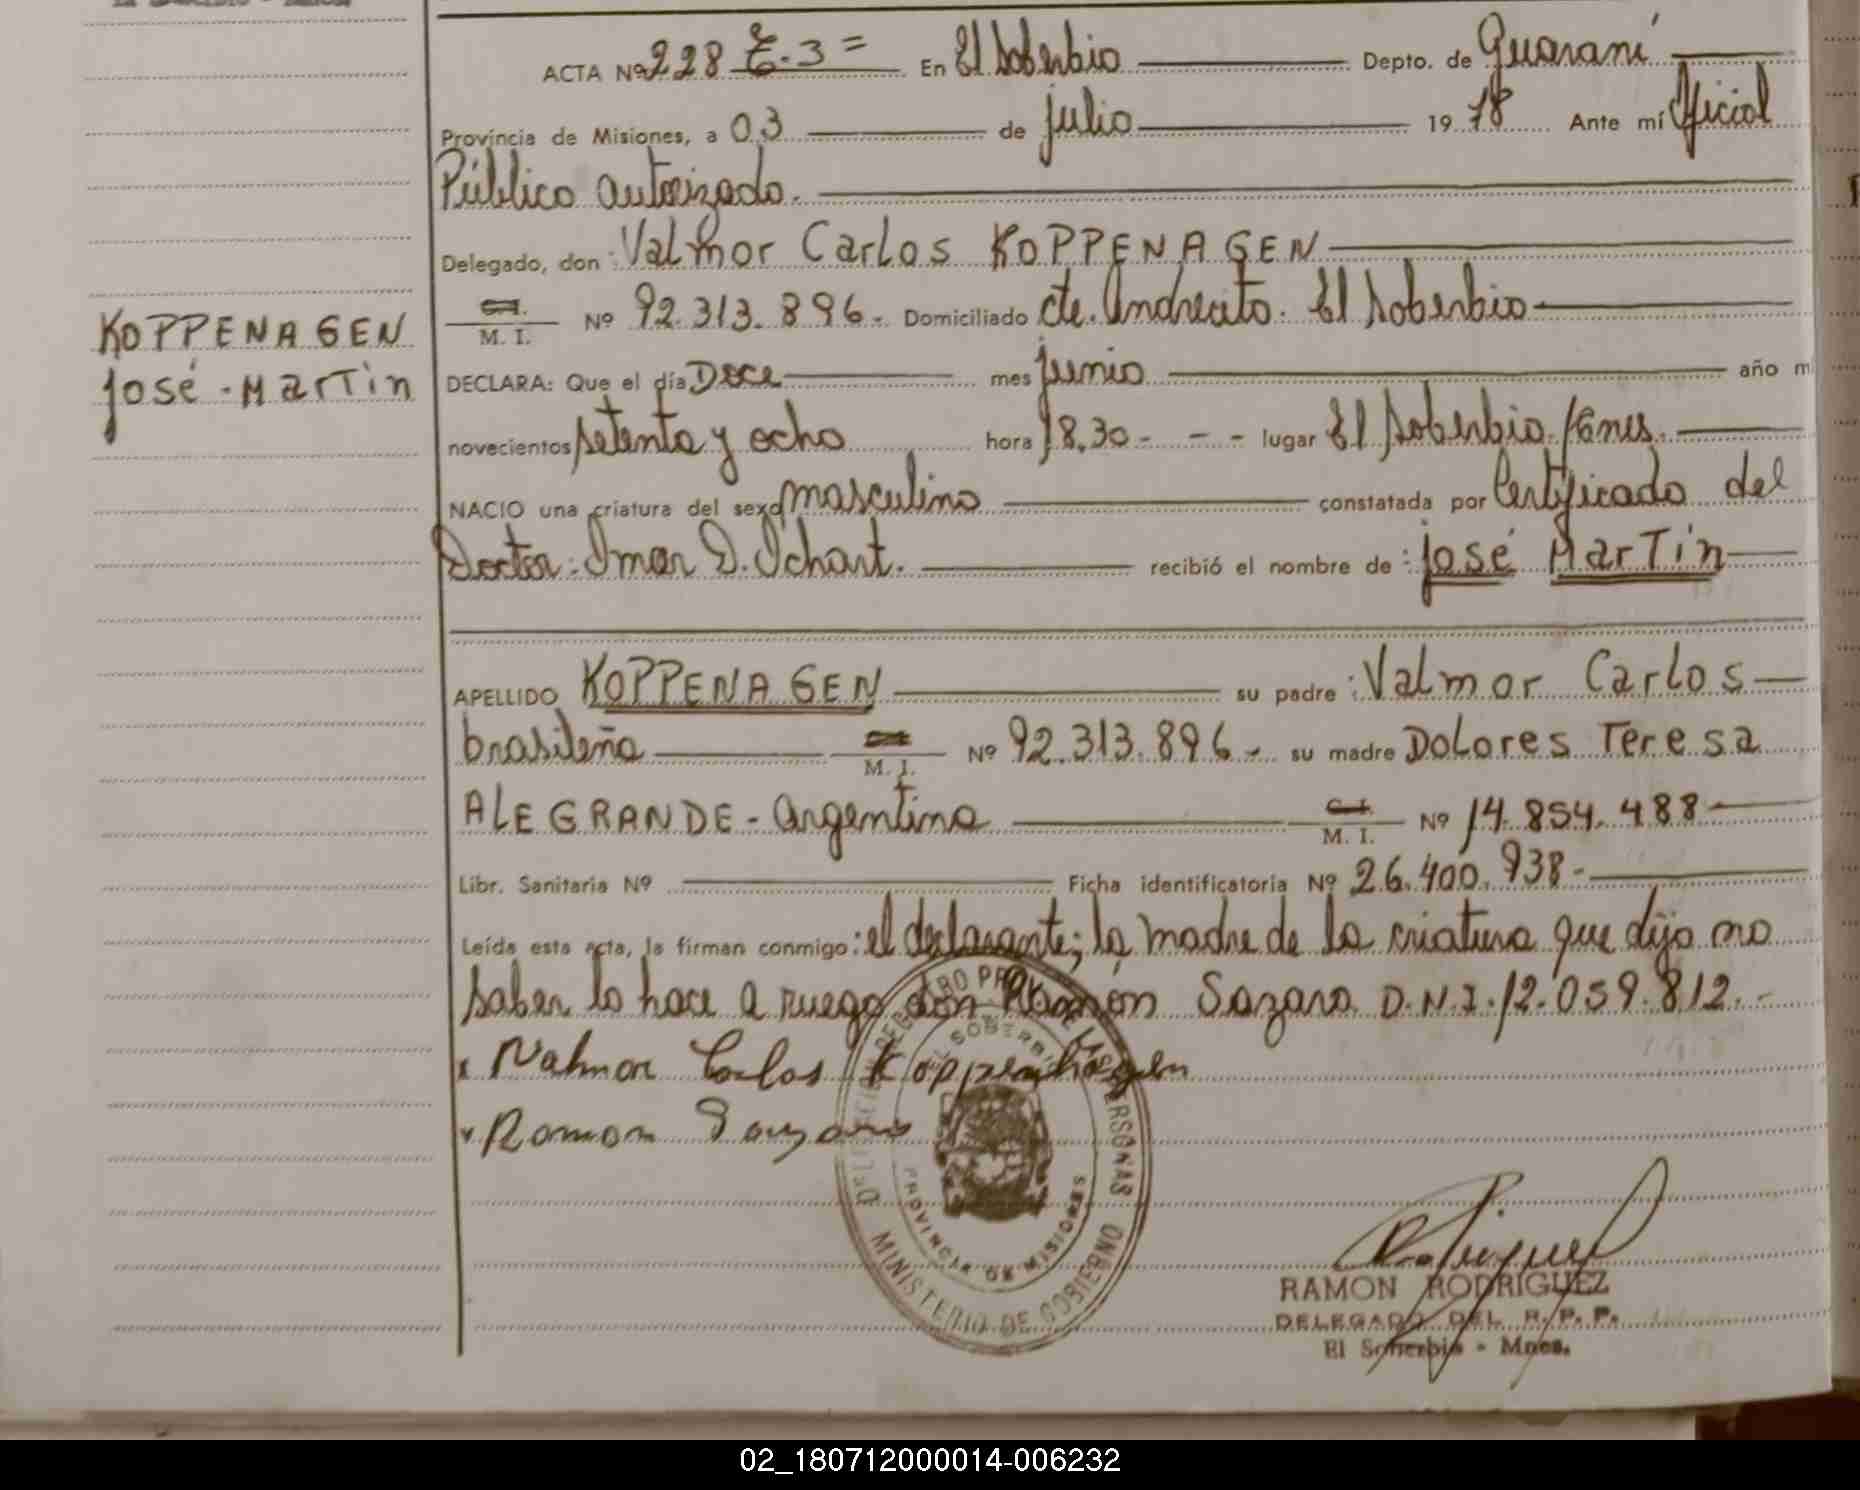 ACTA Nº 228 T. 3 = En El Soberbio Depto. de Guaraní
Provincia de Misiones, a 03 de julio 19 78 Ante mí Oficial
Público autorizado.
Delegado, don: Valmor Carlos KOPPENAGEN
M. I. Nº 92.313.896.- Domiciliado cte. Andrecito. El Soberbio
KOPPENAGEN
José - Martin
DECLARA: Que el día Doce mes junio año m
novecientos setenta y ocho hora 18,30 - - - lugar El Soberbio
NACIO una criatura del sexo masculino constatada por Certificado del
Doctor: Omar D. Ichart. recibió el nombre de: José Martin
APELLIDO KOPPENAGEN su padre: Valmor Carlos
brasileña M. I. Nº 92.313.896.- su madre Dolores Teresa
ALEGRANDE - argentina M. I. Nº 14.854.488
Libr. Sanitaria Nº Ficha identificatoria Nº 26.400.938-
Leída esta acta, la firman conmigo: el declarante; la madre de la criatura que dijo no
saber lo hace a ruego don Ramón Sazara D.N.I. 12.059.812.-
x Valmor Carlos Koppenhagen
Ramon
MINISTERIO DE GOBIERNO
EL SOBERBIO
PROVINCIA DE MISIONES
RAMON RODRIGUEZ
DELEGADO DEL R. P. P.
El Soberbio - Mnes.
02_180712000014-006232